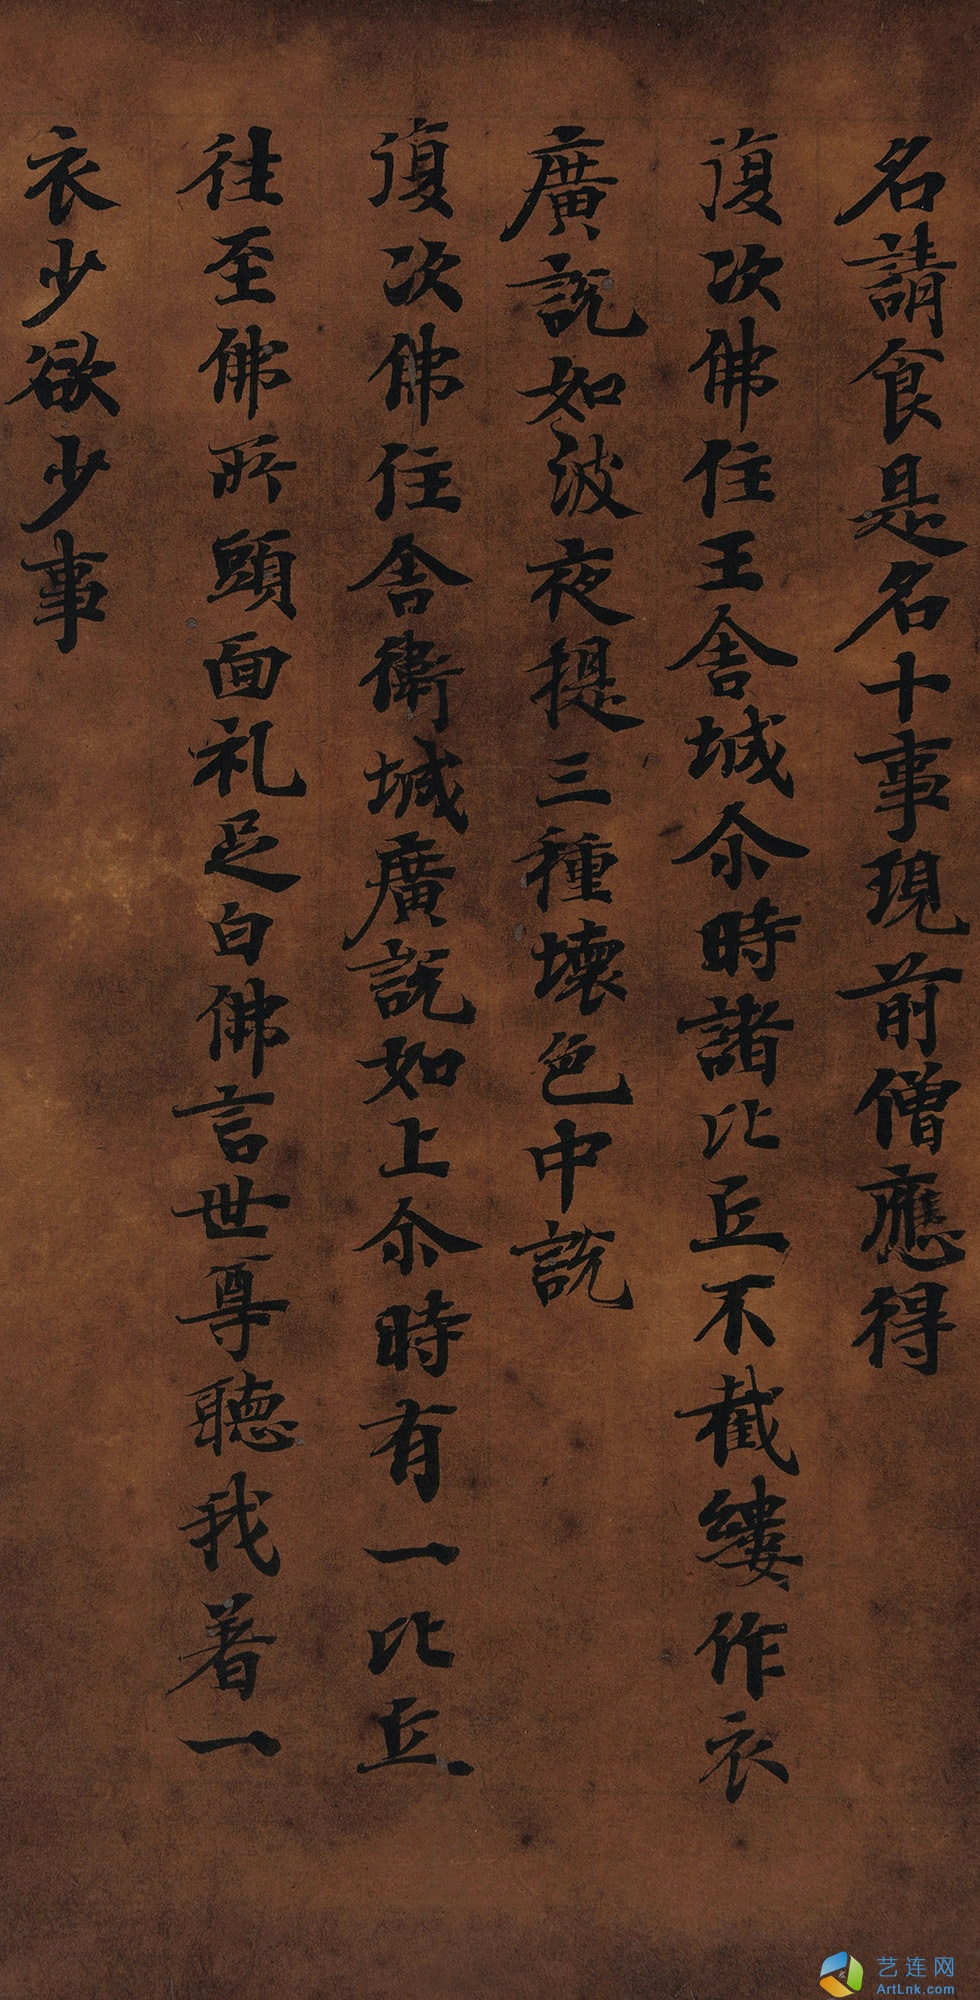 名請食是名十事現前僧應得
復次佛住王舍城尒時諸比丘不截縷作衣
廣說如波夜提三種壞色中說
復次佛住舍衛城廣說如上尒時有一比丘
往至佛所頭面礼足白佛言世尊聽我著一
衣少欲少事
艺连网
ArtLnk.com